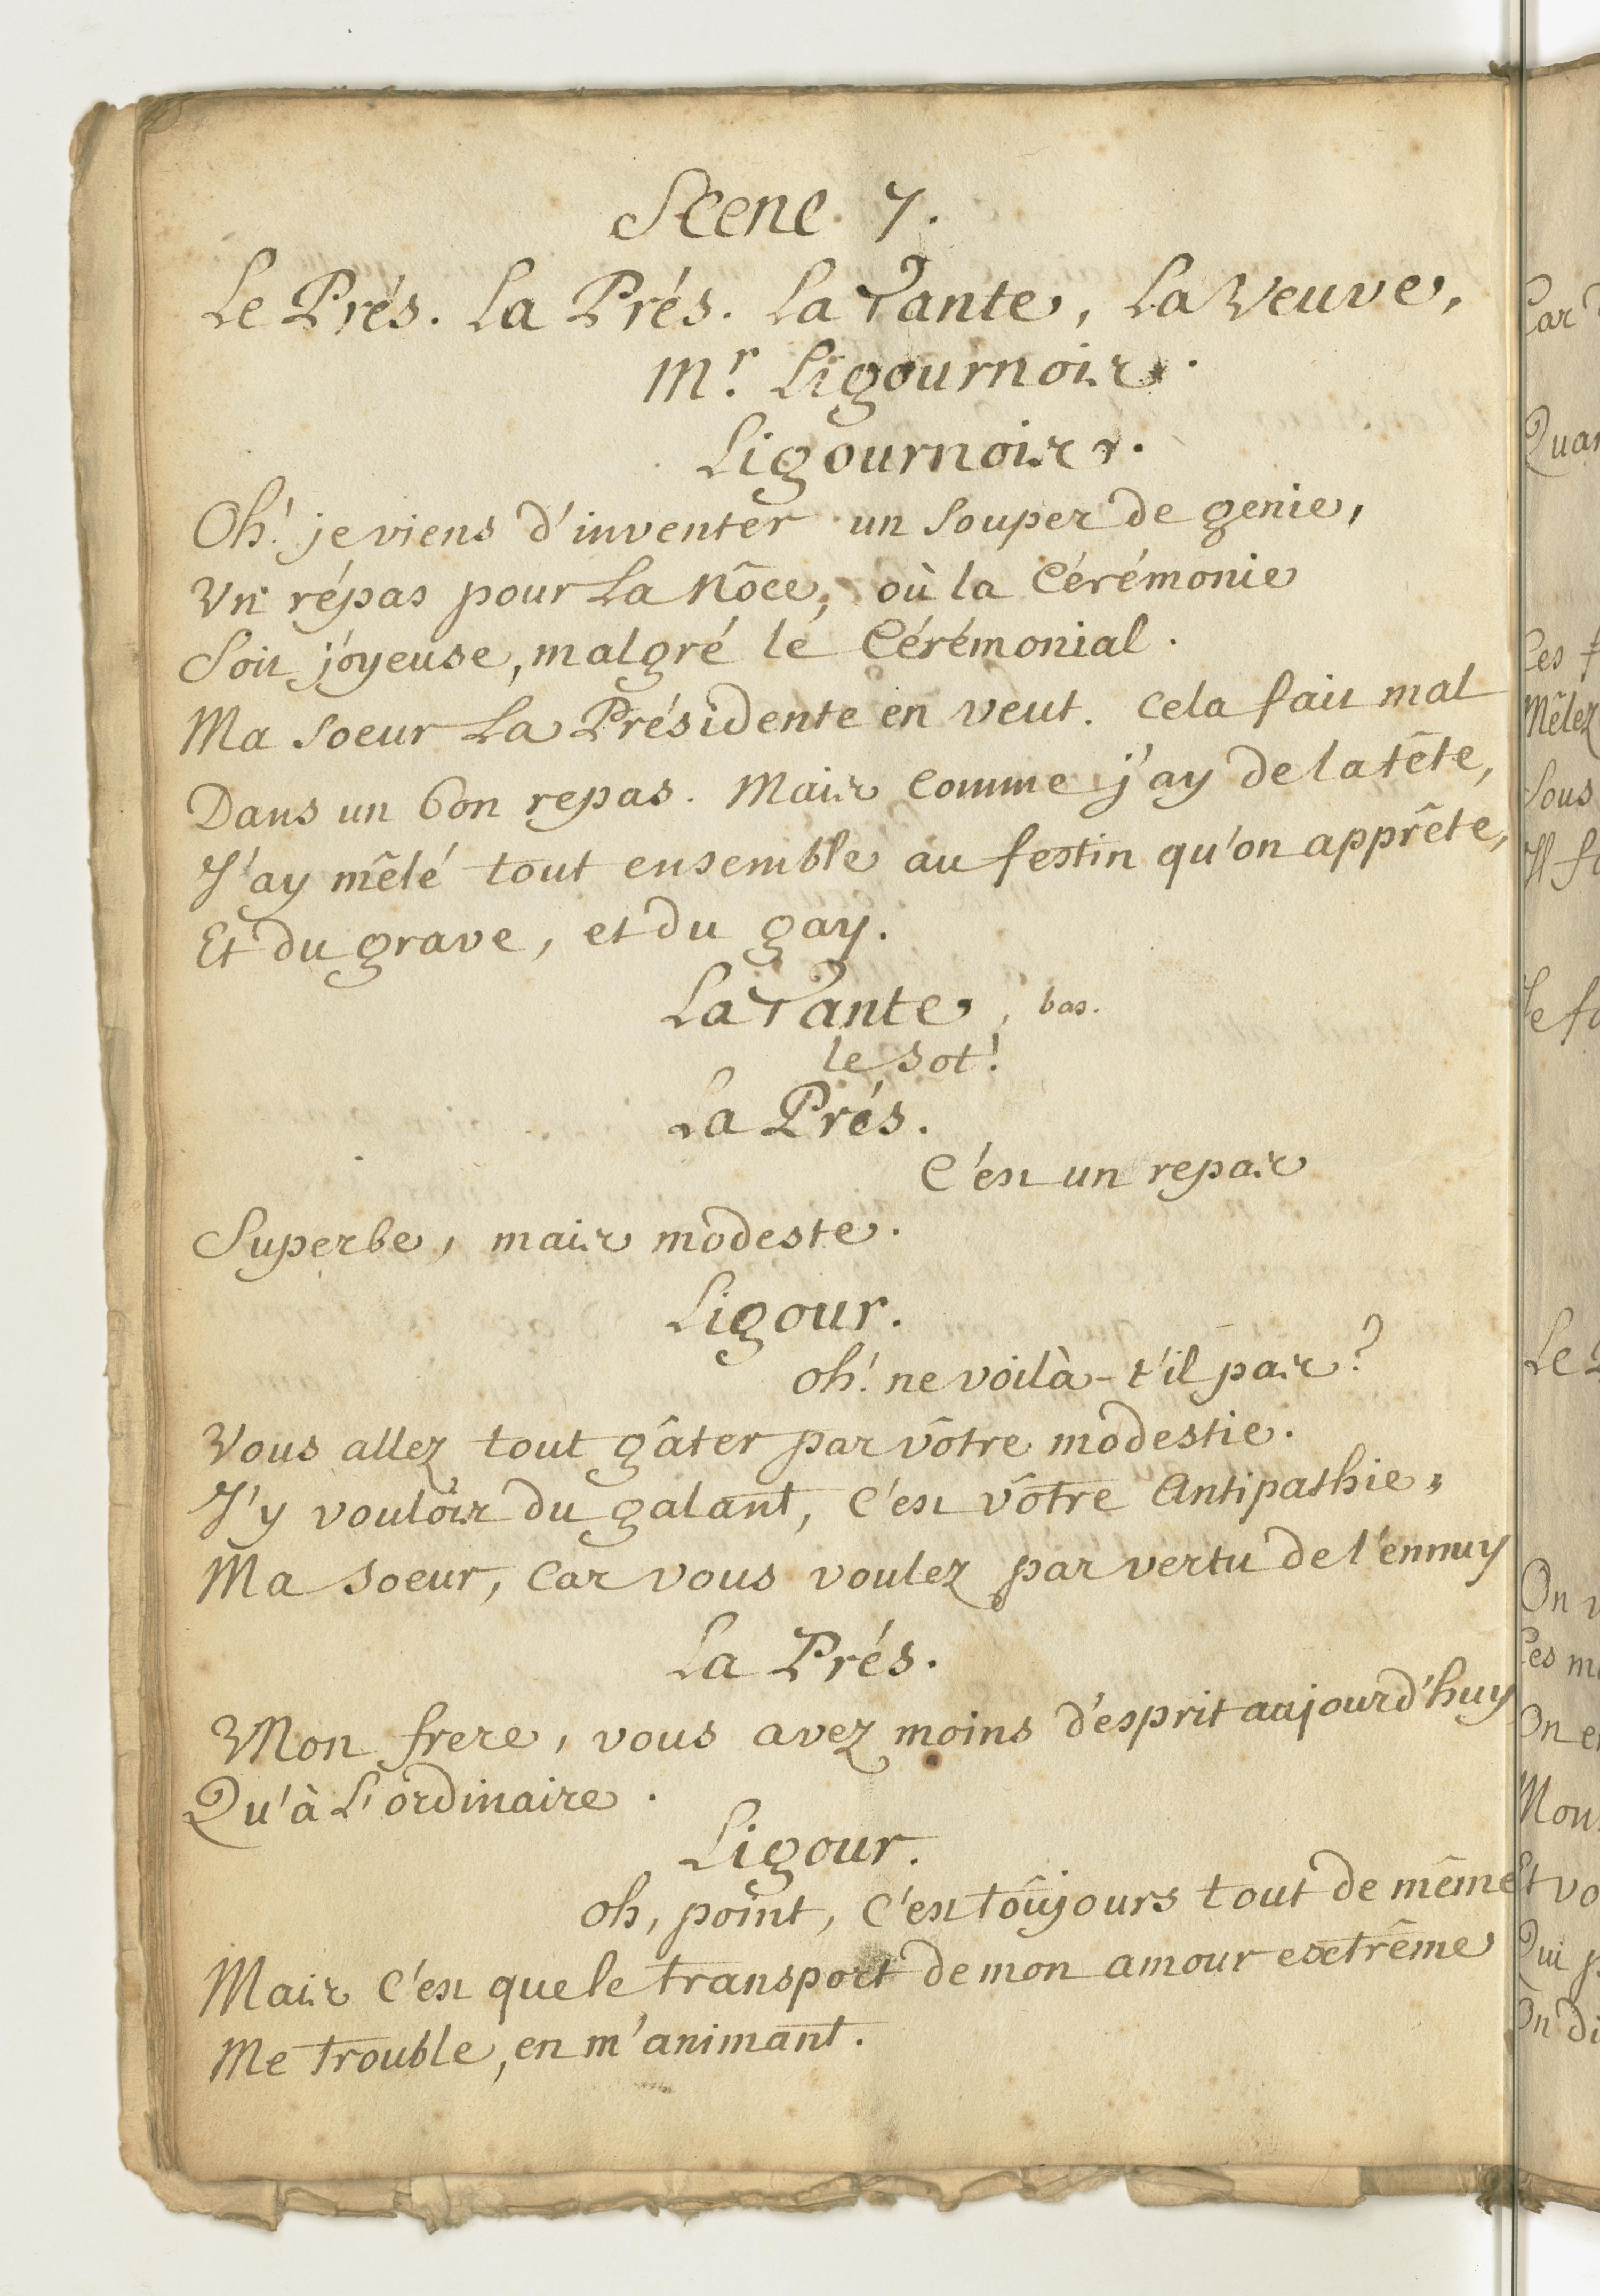 Scene 7.
Le Prés. La Prés. La Tante, La Veuve,
Mr. Ligournois.
Ligournois.
Oh! je viens d'inventer un souper de genie,
Un répas pour La Nôce, où la Cérémonie
Soit joyeuse, malgré le Cérémonial.
Ma soeur La Présidente en veut. Cela fait mal
Dans un bon repas. Mais comme j'ay de la tête,
J'ay mêlé tout ensemble au festin qu'on apprête,
Et du grave, et du gay.
La Tante, bas.
le sot!
La Prés.
C'est un repas
Superbe, mais modeste.
Ligour.
Oh! ne voilà-t'il pas?
Vous allez tout gâter par vôtre modestie.
J'y voulois du galant, C'est vôtre Antipathie,
Ma soeur, Car vous voulez par vertu de l'ennuy
La Prés.
Mon frere, vous avez moins d'esprit aujourd'huy
Qu'à L'ordinaire.
Ligour.
Oh, point, C'est toûjours tout de même
Mais C'est que le transport de mon amour extrême
Me trouble, en m'animant.
Car
Ces
Mêlez
Sous
Il
Je
Le
On
Ces
On
Et
Qui
On